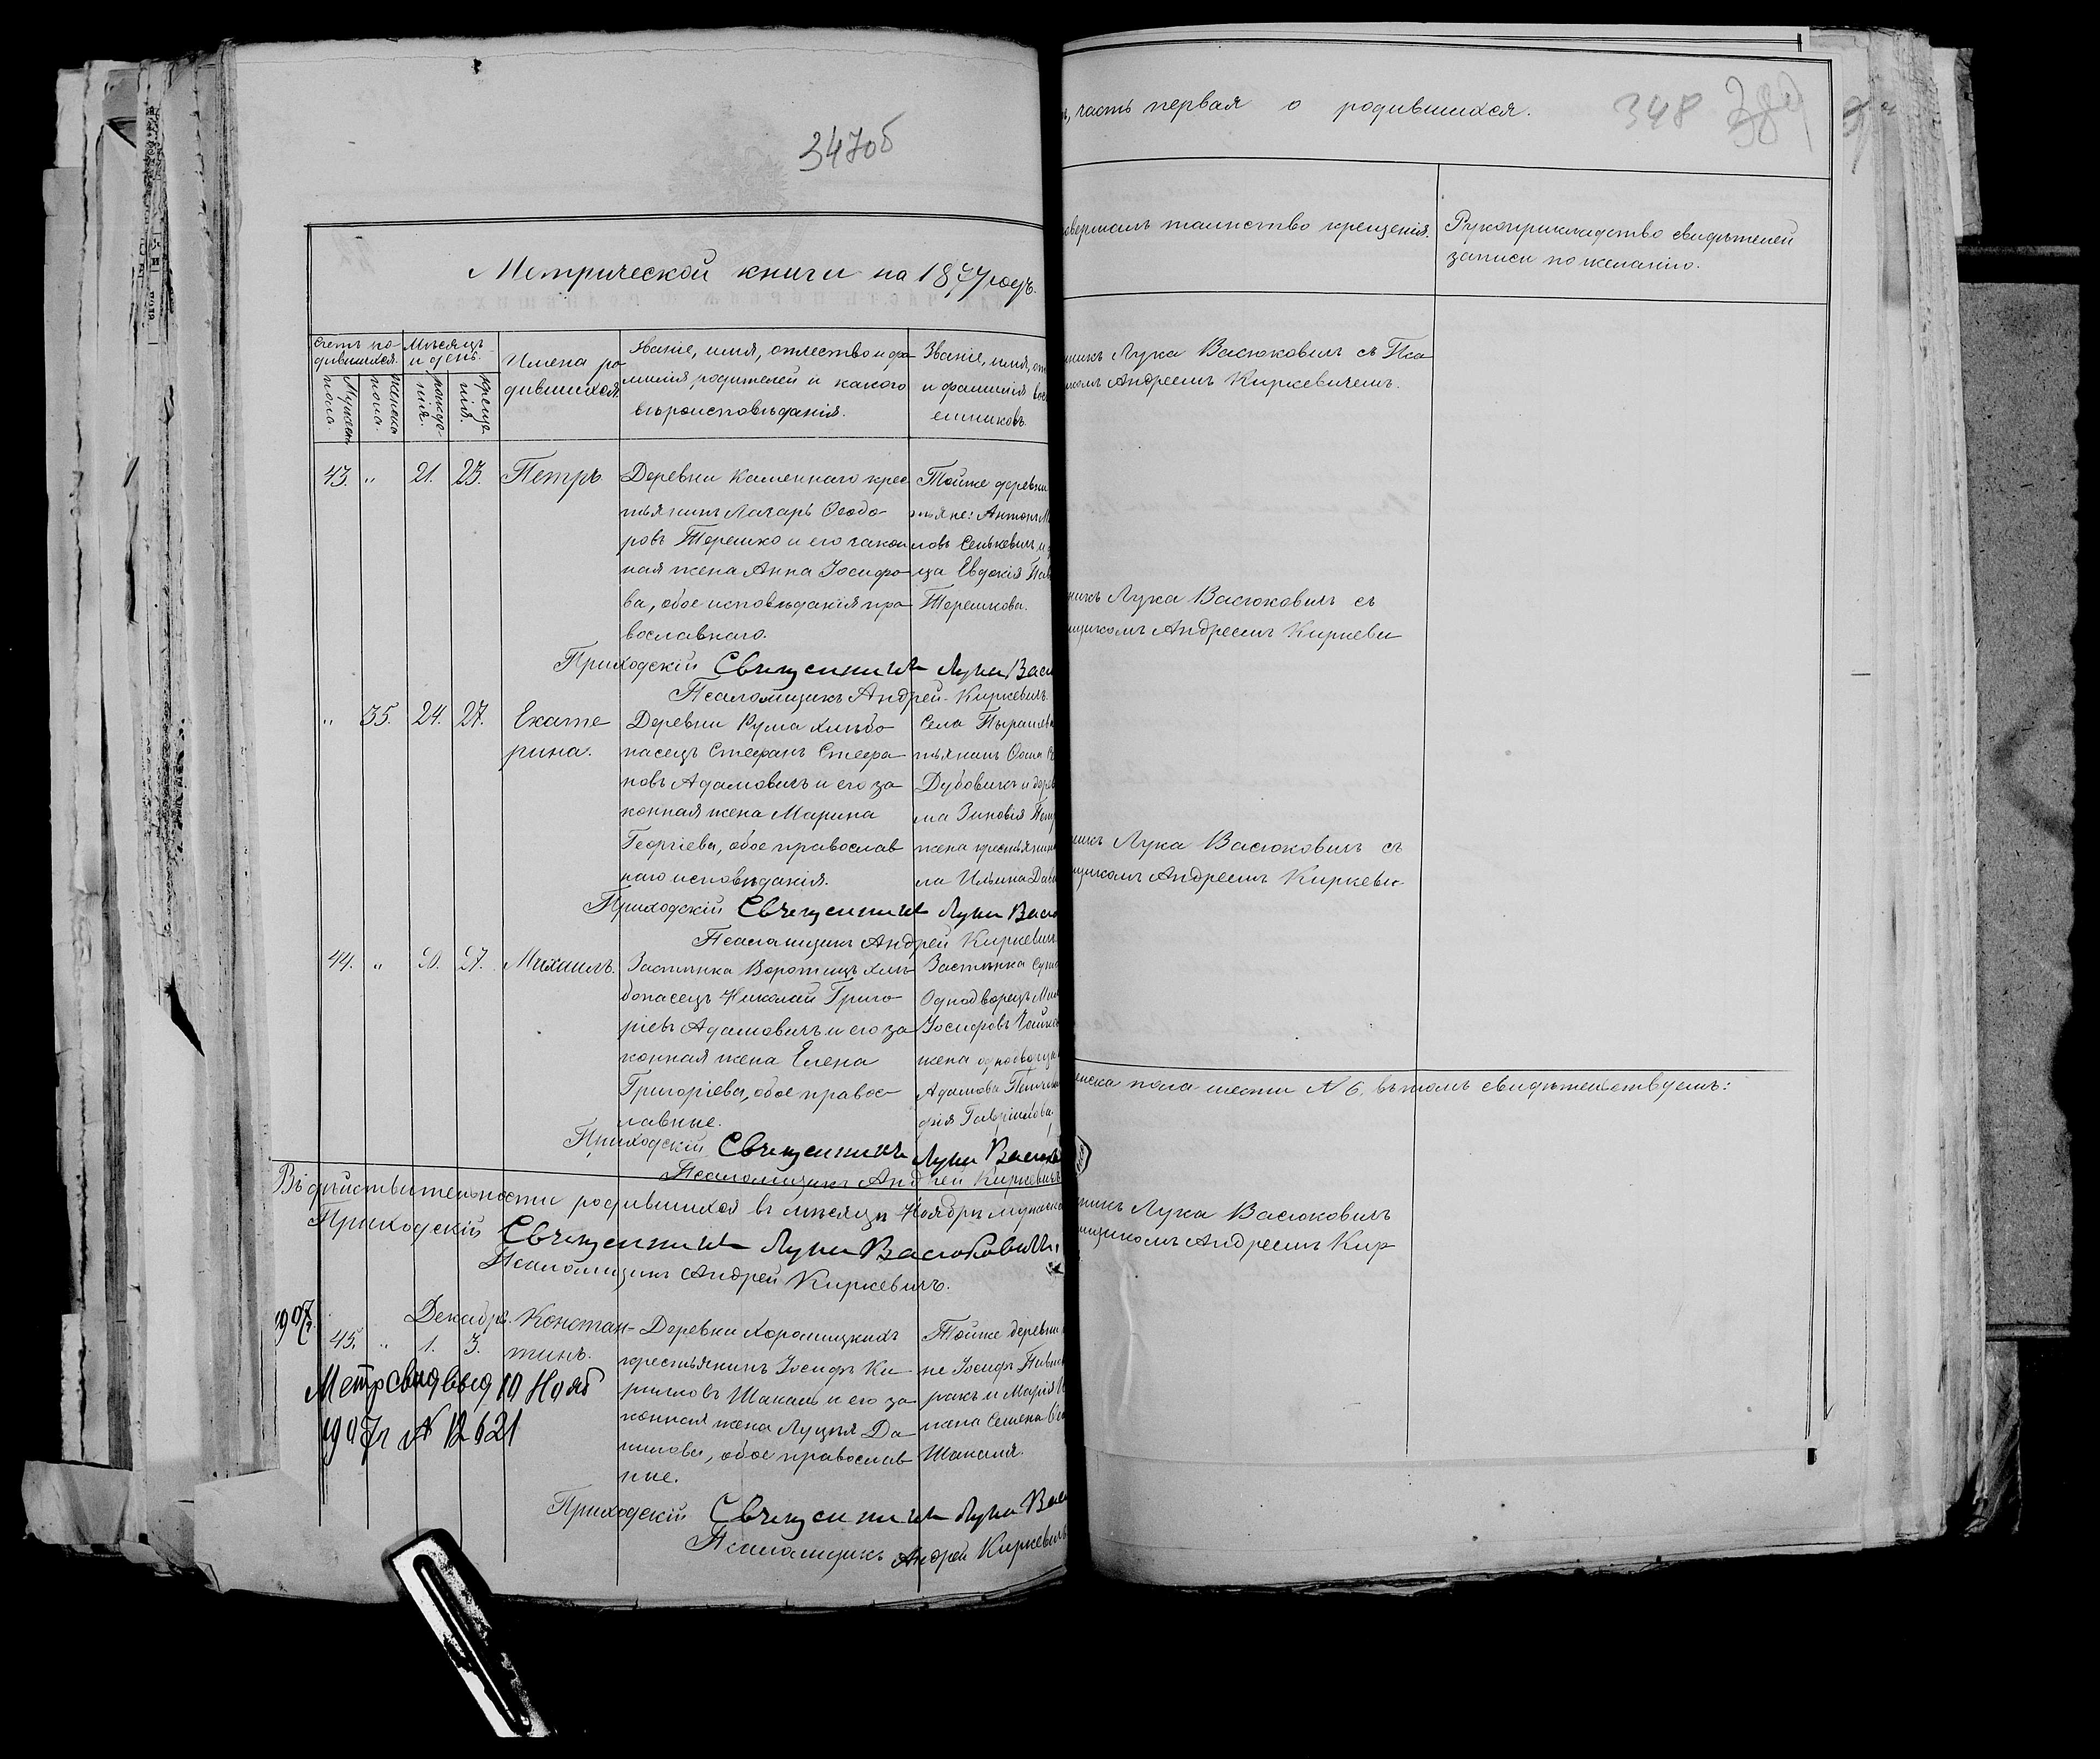 347об
Метрической книги на 1877 годъ.
Счетъ ро-
дившихся.
Мужеск.
пола.
Женска
пола.
Мѣсяцъ
и день.
рожде-
нія.
крещ.
нія.
Имена ро
дившихся.
Званіе, имя, отчество и фа
милія родителей и какого
вѣроисповѣданія.
Званіе, имя, от
и фамилія вос
емниковъ.
43. " 21. 23. Петръ
Деревни Каменнаго крес
тьянинъ Лазарь Ѳеодо-
ровъ Терешко и его закон
ная жена Анна Іосифо
ва, обое исповѣданія пра
вославнаго.
Тойже деревни
тьяне: Антонъ М
новъ Сенькевичъ и
ца Евдокія Пав
Терешкова.
Приходскій Священникъ Лука Васю
Псаломщикъ Андрей Киркевичъ.
" 35. 24. 27. Екате
рина.
Деревни Кума хлѣбо
пасецъ Стефанъ Стефа
новъ Адамовичъ и его за
конная жена Марина
Георгіева, обое православ
наго исповѣданія.
Села Пырашева
тьянинъ Осипъ
Дубовикъ и дерев
ма Зиновія Пет
жена крестьянина
ла Ильина Дави
Приходскій Священникъ Лука Васю
Псаломщикъ Андрей Киркевичъ
44. " 20. 27. Михаилъ.
Застѣнка Воротищъ хлѣ
бопасецъ Николай Григо
ріевъ Адамовичъ и его за
конная жена Елена
Григоріева, обое правос-
лавные.
Застѣнка
Однодворецъ Ми
Іосифовъ
жена однодворца
Адамова
Гавріилова
Приходскій Священникъ Лука Васюко
Псаломщикъ Андрей Киркевичъ
Въ дѣйствительности родившихся въ мѣсяцѣ Ноябрѣ мужеска
Приходскій Священникъ Лука Васюковичъ,
Псаломщикъ Андрей Киркевичъ.
1907г.
Декабрь.
45. " 1. 3. Констан-
тинъ.
Деревни Хоромицкихъ
крестьянинъ Іосифъ Ки
рилловъ Шакаль и его за
конная жена Луція Да
нилова, обое православ
ные.
Тойже деревни
не Іосифъ Павло
ракъ и Марія
жена Семена
Шакаля.
Метр свид выд 10 Нояб
1907г № 12621
Приходскій Священникъ Лука Васю
Псаломщикъ Андрей Киркевичъ
ъ, часть первая о родившихся.
348
овершалъ таинство крещенія.
Рукоприкладство свидѣтелей
записи по желанію.
нникъ Лука Васюковичъ съ Пса
комъ Андреемъ Киркевичемъ.
никъ Лука Васюковичъ съ
щикомъ Андреемъ Киркеви
никъ Лука Васюковичъ съ
щикомъ Андреемъ Киркеви-
енска пола шесть № 6, въ томъ свидѣтельствуемъ:
нникъ Лука Васюковичъ
щикомъ Андреемъ Кир